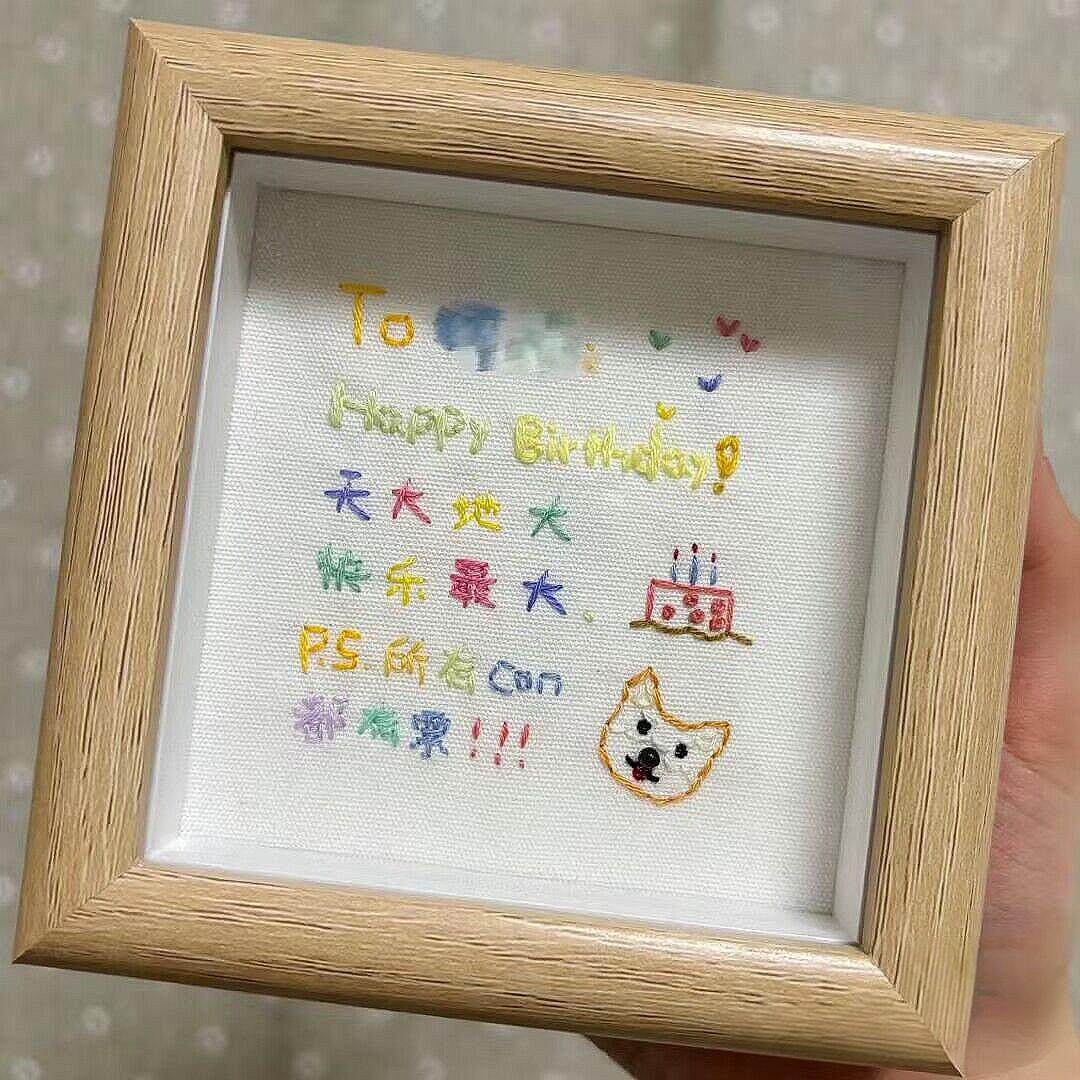 To :
Happy Birthday!
天大地大
快乐最大.
P.S. 所有con
都有票!!!